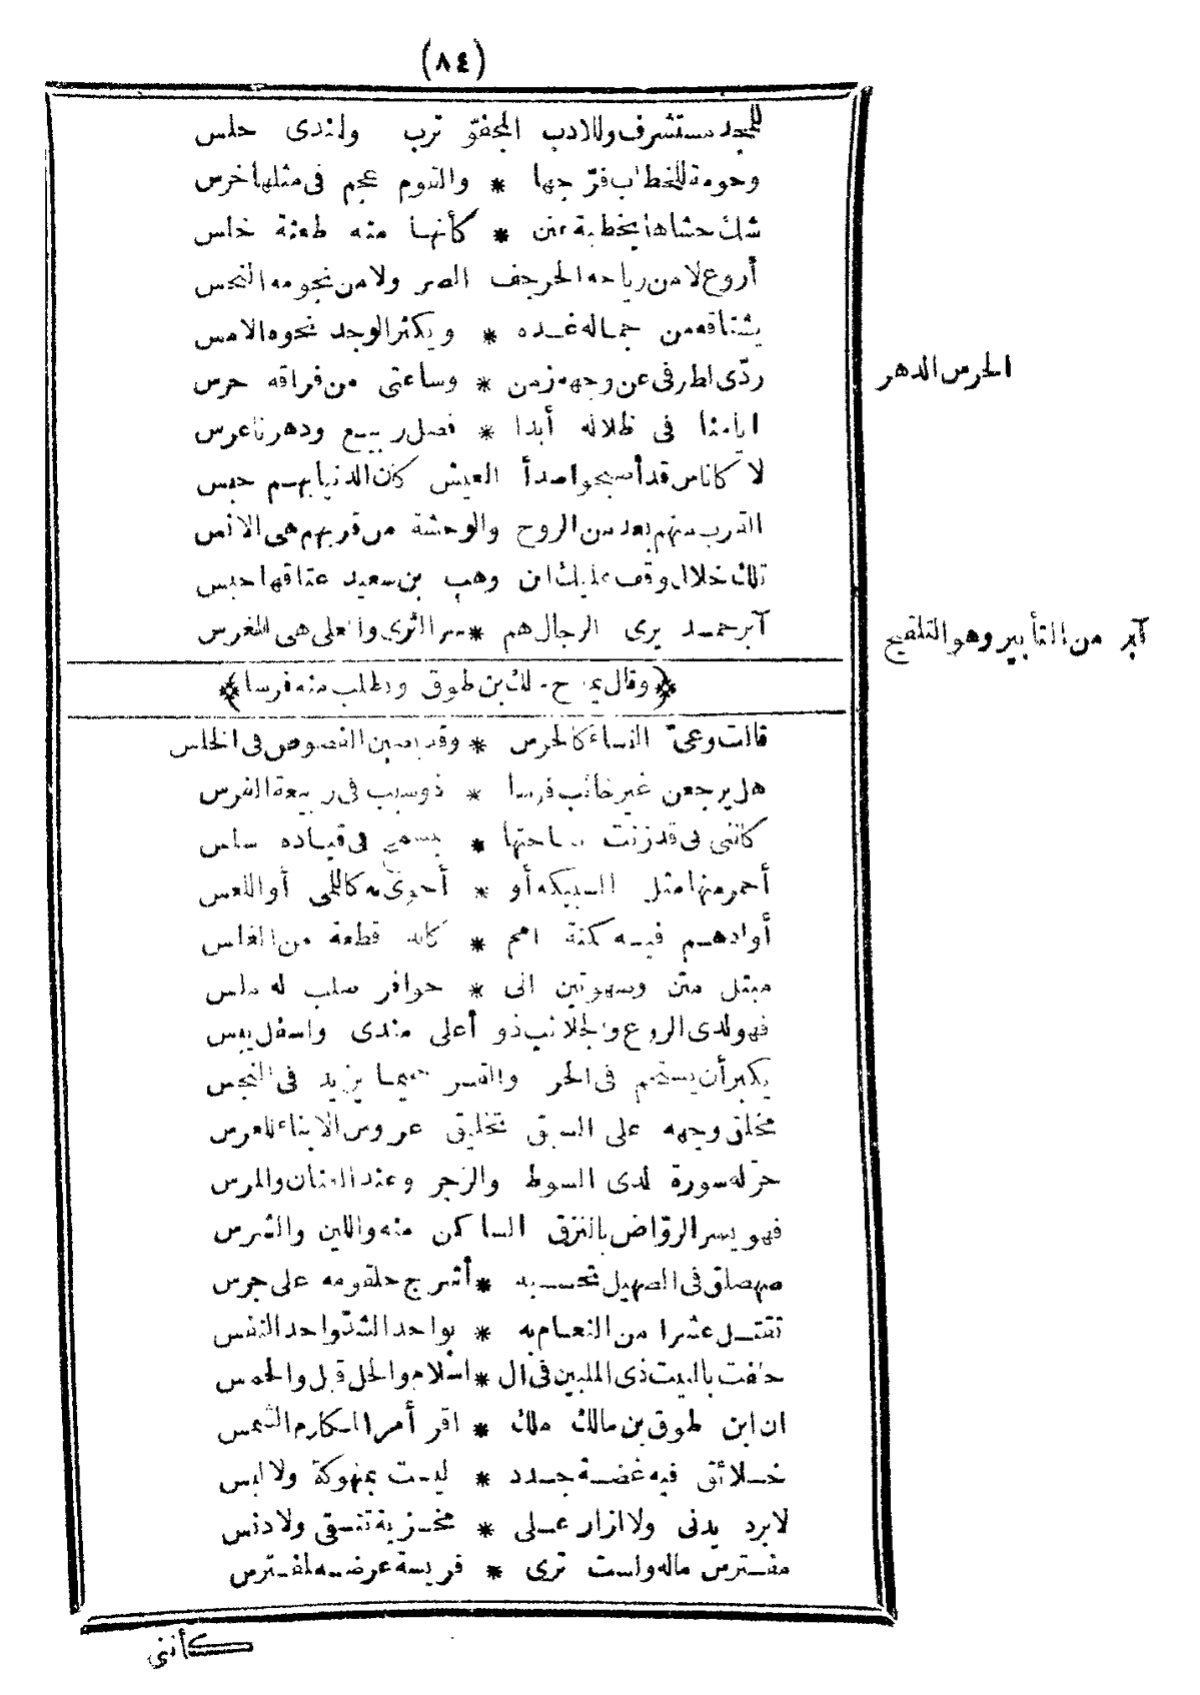 (٨٤)
للمجد مستشرف وللادب المجفوّ ترب ولندى حلس
وحومة للخطاب فرّجها * والقوم عجم فى مثلها خرس
شك حشاها بخطبة عنن * كأنها منه طعنة خلس
أروع لا من رياحه الحرجف الصر ولا من نجومه النحس
يشتاقه من جماله غده * ويكثر الوجد نحوه الامس
ردّى لطرفى عن وجهه زمن * وساعتى من فراقه حرس
الحرس الدهر
ايامنا فى ظلاله أبدا * فصل ربيع ودهرنا عرس
لا كاناس قد أصبحوا صدأ العيش كأن الدنيا بهم حبس
القرب منهم بعد من الروح والوحشة من قربهم هى الانس
تلك خلال وقف عليك ابن وهب بن سعيد عتاقها حبس
آبر حمد يرى الرجال هم * سر الثرى والعلى هى المغرس
آبر من التأبير وهو التلقيح
﴿وقال يمدح مالك بن طوق ويطلب منه فرسا﴾
قالت وعىّ النساء كالخرس * وقد يصبن الفصوص فى الخلس
هل يرجعن غير خائب فرسا * ذو سبب فى ربيعة الفرس
كاننى بى قد زنت ساحتها * بسمح فى قياده سلس
أحمر منها مثل السبيكه أو * أحوى به كاللمى أو اللعس
أو ادهم فيه كمتة امم * كانه قطعة من الغلس
مبتل متن وصهوتين الى * حوافر صلب له ملس
فهو لدى الروع والحلائب ذو أعلى مندى واسفل يبس
يكبر أن يستحم فى الحر والقر حميما يزيد فى النجس
مخلق وجهه على السبق تخليق عروس الابناء للعرس
حرّ له سورة لدى السوط والزجر وعند العنان والمرس
فهو يسر الروّاض بالنزق الساكن منه واللين والشرس
صهصلق فى الصهيل تحسبه * أشرج حلقومه على جرس
تقتل عشرا من النعام به * بواحد الشدّ واحد النفس
حلفت بالبيت ذى الملبين فى ال * اسلام والحل قبل والحمس
ان ابن طوق بن مالك ملك * اقر أمر المكارم الشمس
خلائق فيه غضة جدد * ليست بمنهوكة ولا لبس
لا برد يدنى ولا ازار على * مخزية تتقى ولا دنس
مفترس ماله ولست ترى * فريسة عرضه لمفترس
كأننى